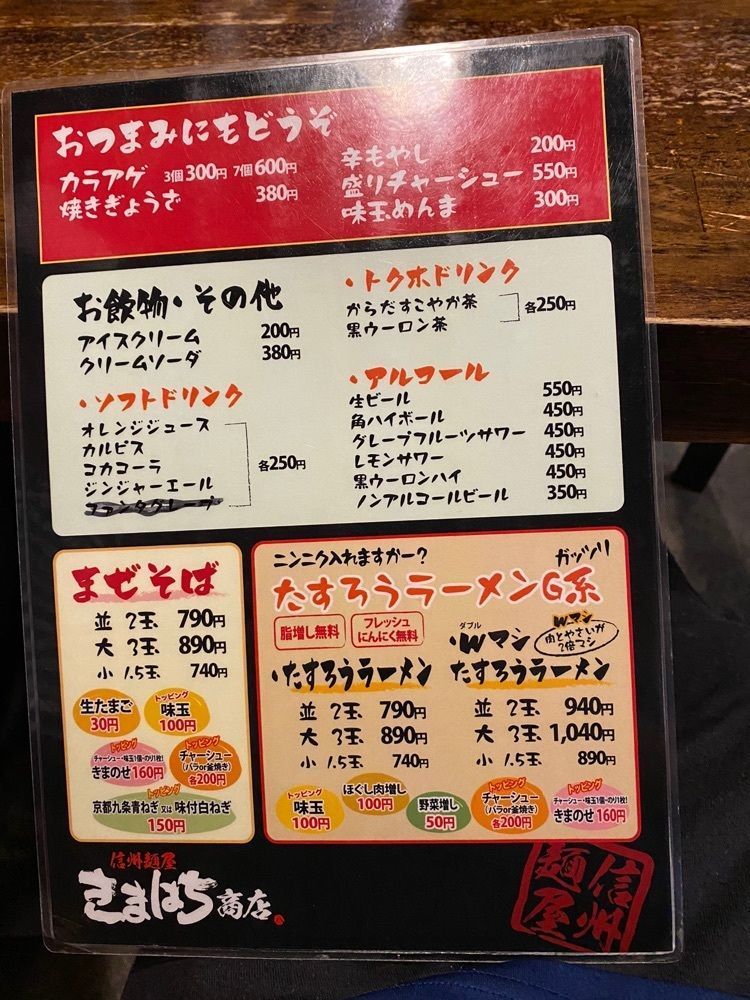 おつまみにもどうぞ
カラアゲ 3個300円 7個600円
焼きぎょうざ 380円
辛もやし 200円
盛りチャーシュー 550円
味玉めんま 300円
お飲物・その他
アイスクリーム 200円
クリームソーダ 380円
・ソフトドリンク
オレンジジュース
カルピス
コカコーラ
ジンジャーエール
各250円
・トクホドリンク
からだすこやか茶
黒ウーロン茶
各250円
・アルコール
生ビール 550円
角ハイボール 450円
グレープフルーツサワー 450円
レモンサワー 450円
黒ウーロンハイ 450円
ノンアルコールビール 350円
まぜそば
並 2玉 790円
大 3玉 890円
小 1.5玉 740円
生たまご
30円
トッピング
味玉
100円
トッピング
チャーシュー・味玉1個・のり1枚!
きまのせ160円
トッピング
チャーシュー
(バラor釜焼き)
各200円
トッピング
京都九条青ねぎ又は味付白ねぎ
150円
ニンニク入れますかー?
ガッツリ
たすろうラーメンG系
脂増し無料
フレッシュ
にんにく無料
・たすろうラーメン
並 2玉 790円
大 3玉 890円
小 1.5玉 740円
ダブル
・Wマシ
Wマシ
肉とやさいが
2倍マシ
たすろうラーメン
並 2玉 940円
大 3玉 1,040円
小 1.5玉 890円
トッピング
味玉
100円
ほぐし肉増し
100円
野菜増し
50円
トッピング
チャーシュー
(バラor釜焼き)
各200円
トッピング
チャーシュー・味玉1個・のり1枚!
きまのせ160円
信州麺屋
きまはち商店
信州
麺屋